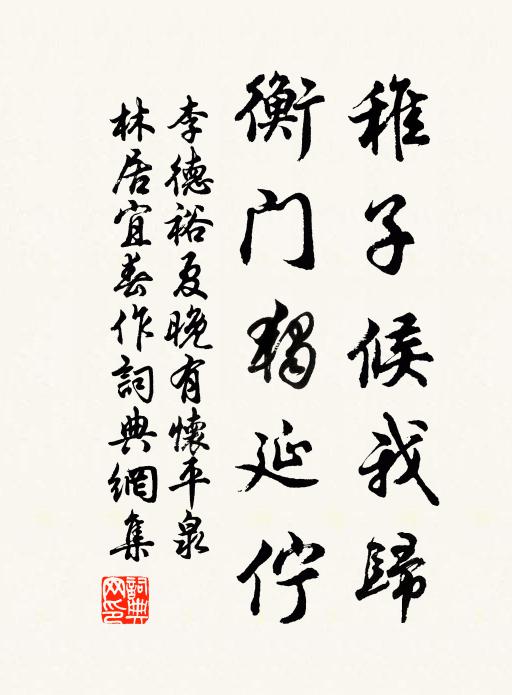 稚子候我歸
衡门獨延佇
李德裕夏晚有懷平泉
林居宜春作詞典網集
詞典
网印